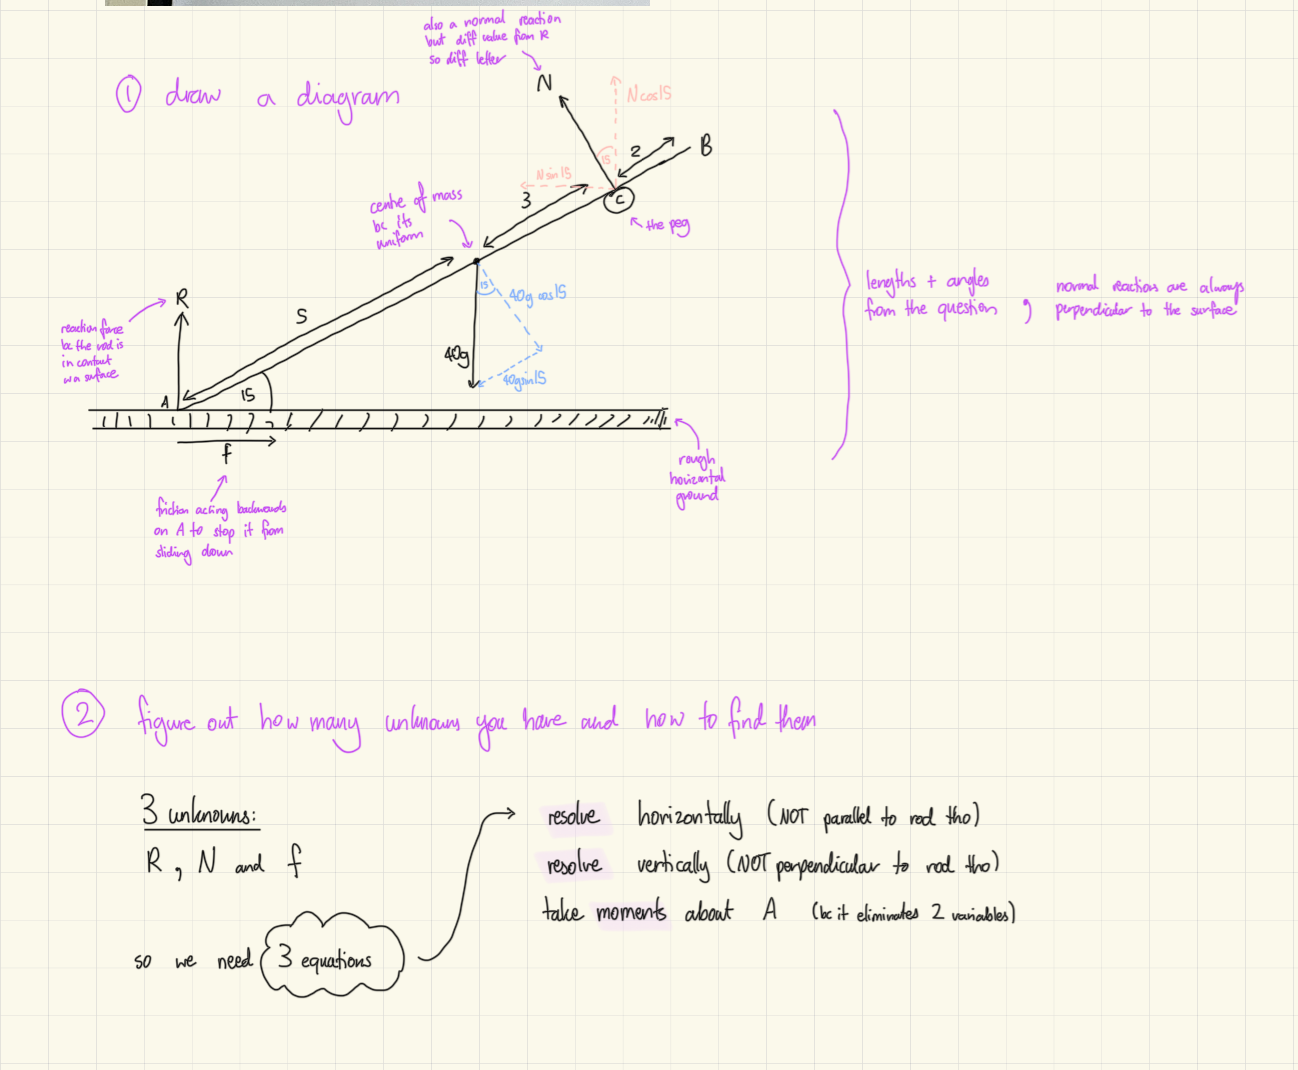 also a normal reaction
but diff value from R
so diff letter
① draw a diagram
N
N cos15
15
2
B
N sin 15
3
C
the peg
centre of mass
bc its
uniform
R
reaction force
bc the rod is
in contact
w a surface
5
15
40g cos15
40g
40gsin15
A
15
f
friction acting backwards
on A to stop it from
sliding down
rough
horizontal
ground
lengths + angles
from the question ,
normal reactions are always
perpendicular to the surface
② figure out how many unknowns you have and how to find them
3 unknowns:
R , N and f
so we need 3 equations
resolve horizontally (NOT parallel to rod tho)
resolve vertically (NOT perpendicular to rod tho)
take moments about A (bc it eliminates 2 variables)